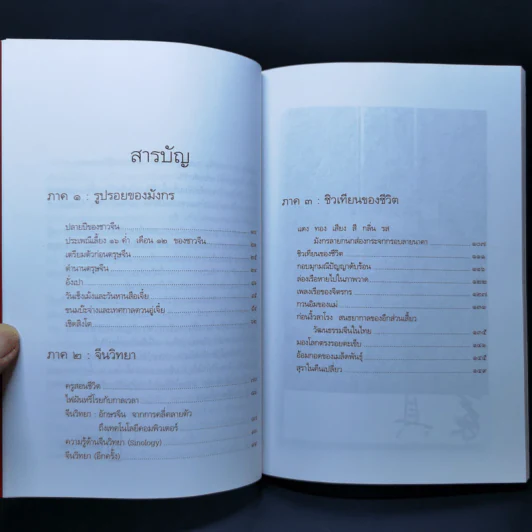 สารบัญ
ภาค ๑ : รูปรอยของมังกร
ปลายปีของชาวจีน
ประเพณีเลี้ยง ๑๖ ค่ำ เดือน ๑๒ ของชาวจีน
เตรียมตัวก่อนตรุษจีน
ตำนานตรุษจีน
อั่งเปา
วันเช็งเม้งและวันทานสือเจี๋ย
ขนมบ๊ะจ่างและเทศกาลตวนอู่เจี๋ย
เชิดสิงโต
ภาค ๒ : จีนวิทยา
ครูสอนชีวิต
ไฟฝันหรี่โรยกับกาลเวลา
จีนวิทยา : อักษรจีน จากการคลี่คลายตัว
ถึงเทคโนโลยีคอมพิวเตอร์
ความรู้ด้านจีนวิทยา (Sinology)
จีนวิทยา (อีกครั้ง)
ภาค ๓ : ชิวเทียนของชีวิต
แดง ทอง เสียง สี กลิ่น รส
มังกรลายกนกส่องกระจกกรอบลายนาคา ๑๐๗
ชิวเทียนของชีวิต
กอบมุกมณีปัญญาดับร้อน
ล่องเรือหายไปในภาพวาด
เพลงเรือของจิตรกร
กวนอิมของแม่
ก่อนงิ้วลาโรง สนธยากาลของอีกส่วนเสี้ยว
วัฒนธรรมจีนในไทย ๑๓๕
มองโลกตรงรอยตะเข็บ
อ้อมกอดของเมล็ดพันธุ์ ๑๔๕
สุราในคืนเปลี่ยว